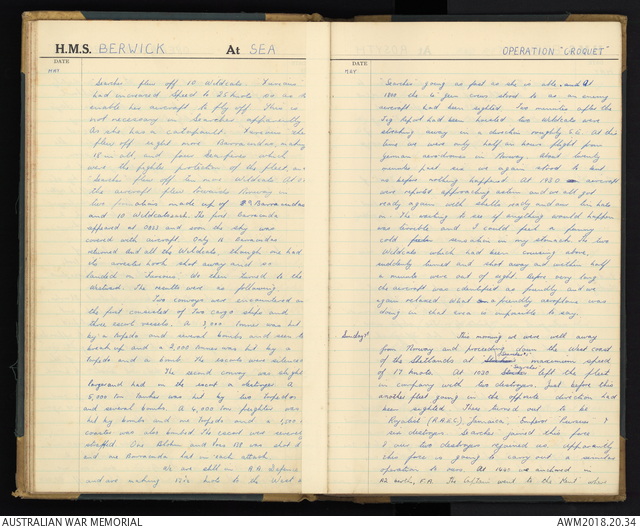 H.M.S. BERWICK At SEA
DATE
MAY
"Searcher" flew off 10 Wildcats. Furious
had increased speed to 25 knots so as to
enable her aircraft to fly off. This is
not necessary in Searcher apparently
as she has a catapault. Furious then
flew off eight more Barracudas, making
18 in all, and four Seafires which
were the fighter protection of the fleet, and
Searcher flew off ten more Wildcats. At
the aircraft flew towards Norway in
two formations made up of 9 Barracudas
and 10 Wildcats each. The first Barracuda
appeared at 0823 and soon the sky was
covered with aircraft. Only 16 Barracudas
returned and all the Wildcats, though one had
its arrester hook shot away and so
landed in Furious. We then turned to the
Westward. The results were as following:
Two convoys were encountered
the first consisted of Two cargo ships and
three escort vessels. A 3,000 tonner was hit
by a torpedo and several bombs and seen to
break up and a 2,000 tonner was hit by a
torpedo and a bomb. The escorts were silenced
The second convoy was slightly
larger and had in the escort a destroyer. A
5,000 ton tanker was hit by two torpedos
and several bombs. A 4,000 ton freighter was
hit by bombs and one torpedo and a 1,500
coaster was also bombed. The escort was severely
straffed. One Blohm and Voss 138 was shot
and one Barracuda lost in each attack.
We are still in A.A. Defence
and are making knots to the West
OPERATION "CROQUET"
DATE
MAY
"Searcher" going as fast as she is able. At
1800 the 4" gun crews stood to as an enemy
aircraft had been sighted. Two minutes after the
Flag Report had been hoisted two Wildcats were
shooting away in a direction roughly S.E. At this
time we were only half an hours flight from
german aerodromes in Norway. About twenty
minutes past six we again stood to but
as before nothing happened. At 1930 aircraft
were reported approaching astern and we all got
ready again with shells ready and our tin hats
on. The waiting to see if anything would happen
was terrible and I could feel a funny
cold sensation in my stomach. The two
Wildcats which had been cruising above,
suddenly turned and shot away and within half
a minute were out of sight. Before very long
the aircraft was identified as friendly and we
again relaxed. What a friendly aeroplane was
doing in that area is impossible to say.
Sunday 7th
This morning we were well away
from Norway and proceeding down the West coast
of the Shetlands at maximum speed
of 17 knots. At 1030 Searcher left the fleet
in company with two destroyers. Just before this
another fleet going in the opposite direction had
been sighted. These turned out to be
Royalist (R.A.E.C), Jamaica, Emperor, Pursuer &
six destroyers. Searcher joined this force
& our two destroyers rejoined us. Apparently
this force is going to carry out a similar
operation to ours. At 1445 we anchored in
A2 berth, F.A. The Captain went to the Kent where
AUSTRALIAN WAR MEMORIAL
AWM2018.20.34